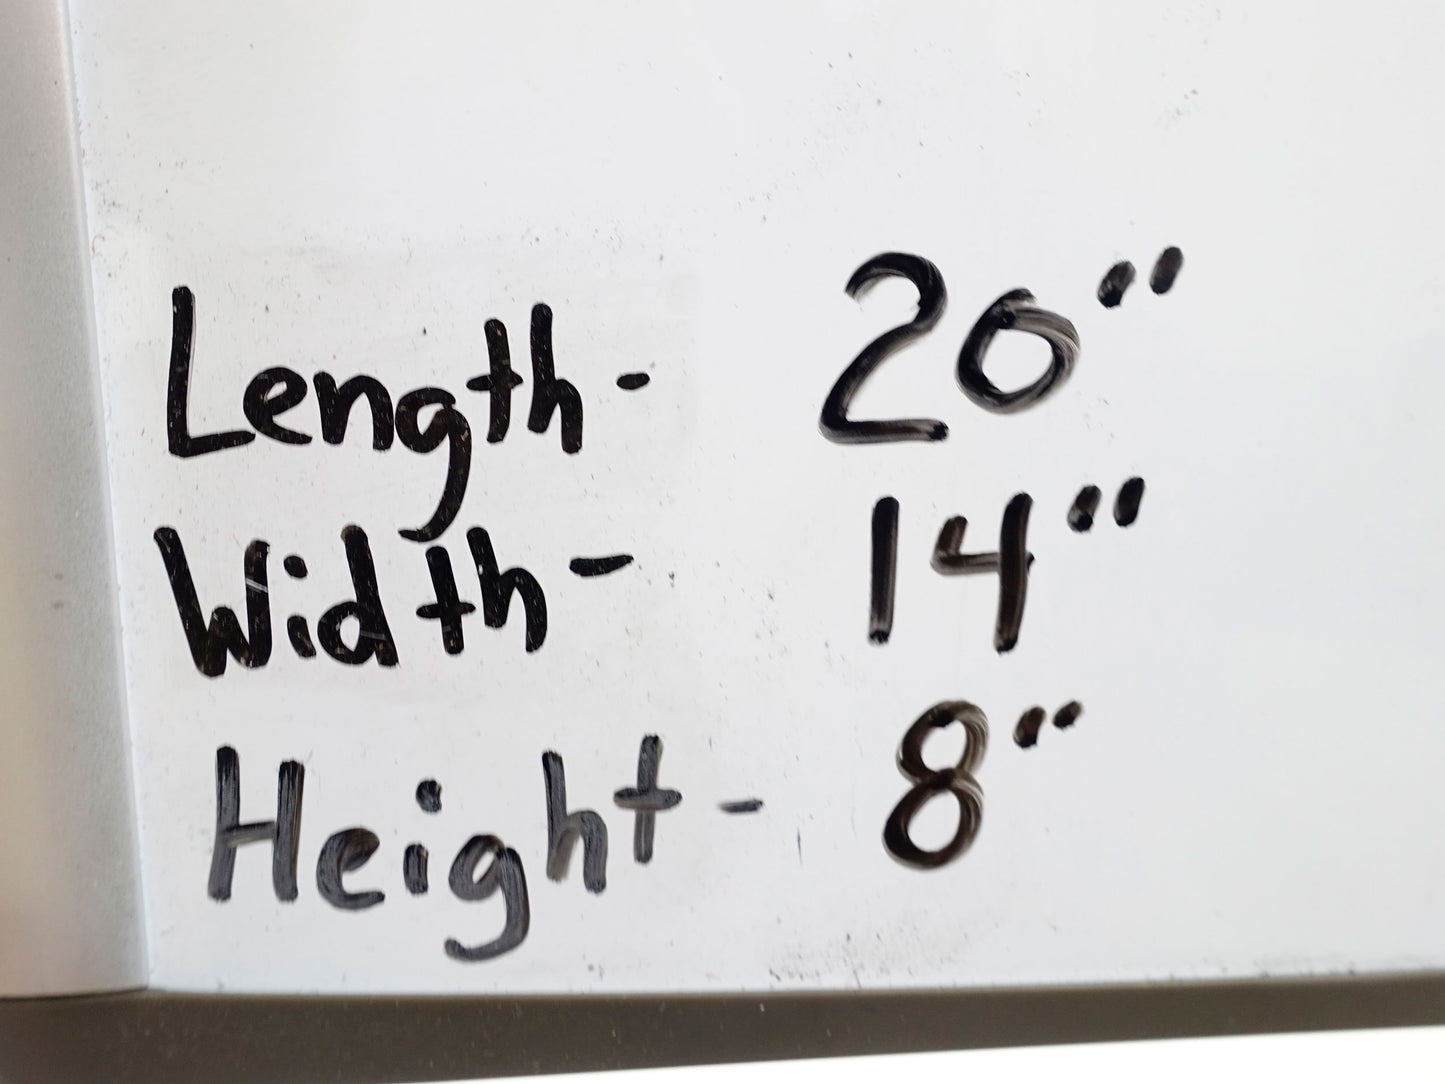 Length- 20"
Width- 14"
Height- 8"